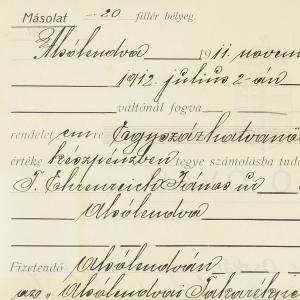 Másolat –·20 fillér bélyeg.
Alsólendva 1911 novem
1912. julius 2-án
váltónál fogva
rendelet emre Egyszázhatvanö
értéke készpénzben tegye számolásba tudó
T. Ehrenreich János úr
Alsólendva
Fizetendő Alsólendván
az „Alsólendvai Takarékpé